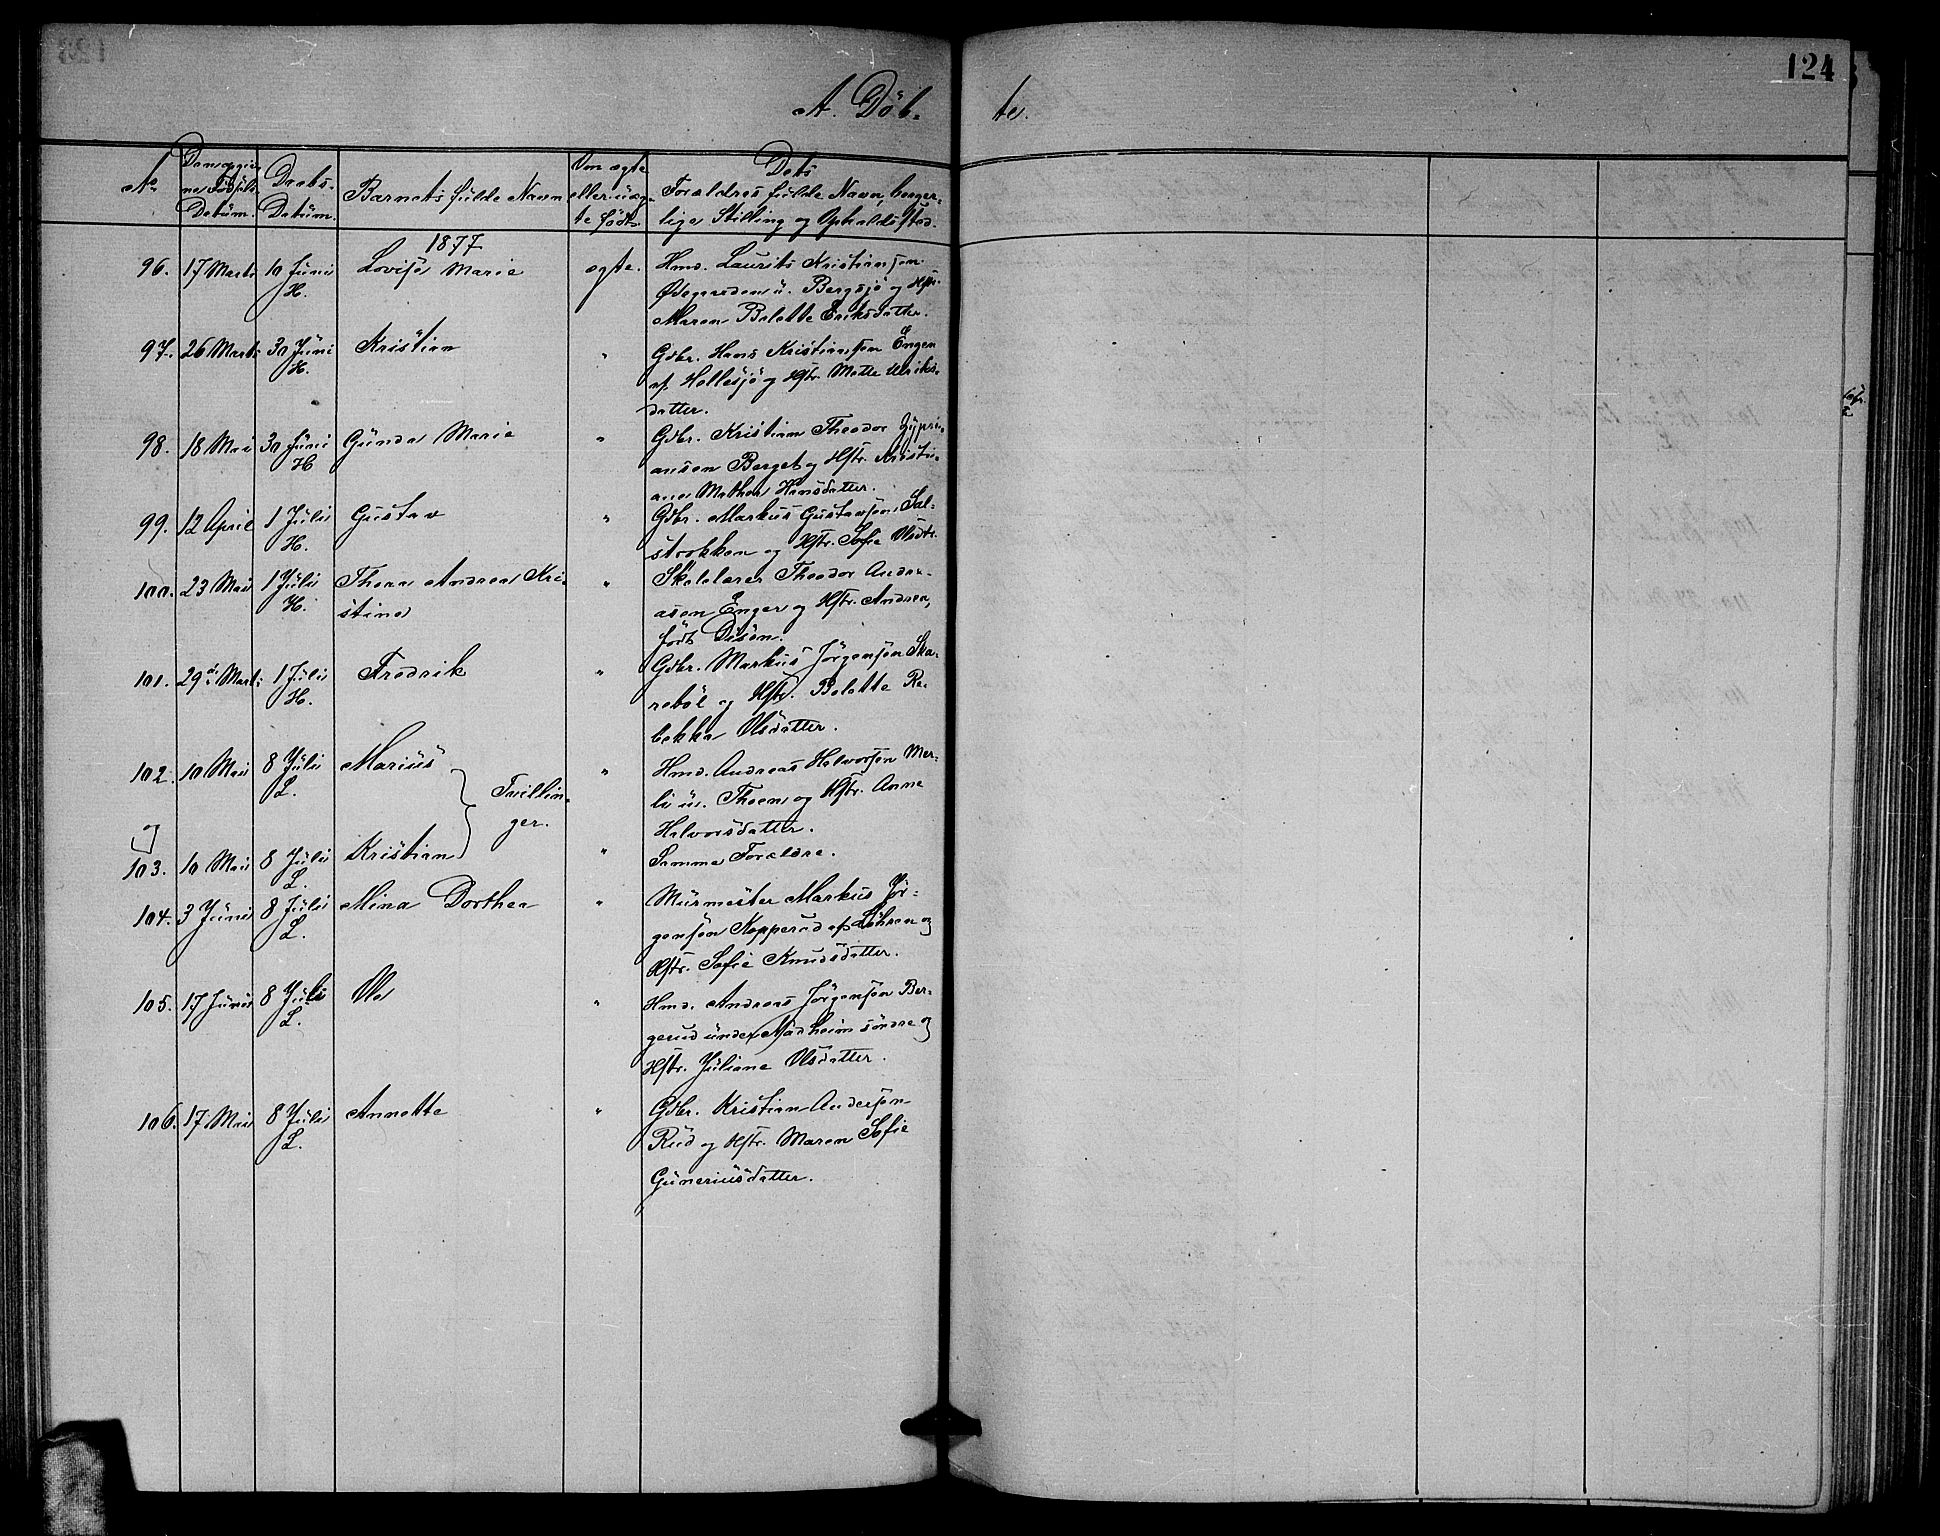 124
A. Döb- te.
No
Den opgivne Fødsels-Datum.
Daabs-Datum.
Barnets fulde Navn
Om ægte eller uægte født.
Dets Forældres fulde Navn, borgerlige Stilling og Opholdssted.
1877
96. 17 Marts 10 Juni H. Lovise Marie ægte. Hmd. Laurits Kristiansen
Ødegaarden u. Bergsjø og Hstr.
Maren Bolette Eriksdatter.
97. 26 Marts 30 Juni H. Kristian " Gdbr. Hans Kristiansen Engen
af Hellesjø og Hstr. Mette Ulriks-
datter.
98. 18 Mai 30 Juni H Gunda Marie " Gdbr. Kristian Theodor Zypri-
ansen Berget og Hstr. Kristi-
ane Mathea Hansdatter.
99. 12 April 1 Juli H. Gustav " Gdbr. Markus Gustavsen Sal-
strokken og Hstr. Sofie Olsdtr.
100. 23 Mai 1 Juli H. Thora Andrea Kri- " Skolelærer Theodor Andre-
stine
asen Enger og Hstr. Andrea,
født Disen.
101. 29de Marts 1 Juli H. Fredrik " Gdbr. Markus Jørgensen Ska-
rebøl og Hstr. Bolette Re-
bekka Olsdatter.
102. 10 Mai 8 Juli L. Marius " Hmd. Andreas Halvorsen Mer-
Tvillin-
li u. Thoen og Hstr. Anne
ger.
Halvorsdatter.
og
103. 10 Mai 8 Juli L. Kristian " Samme Forældre.
104. 3 Juni 8 Juli L. Mina Dorthea " Murmester Markus Jör-
gensen Kopperud af Löhren og
Hstr. Sofie Knudsdatter.
105. 17 Juni 8 Juli L. Ole " Hmd. Andreas Jörgensen Ber-
gerud under Nadheim söndre og
Hstr. Juliane Olsdatter.
106. 17 Mai 8 Juli L. Annette " Gdbr. Kristian Andersen
Rud og Hstr. Maren Sofie
Guneriusdatter.